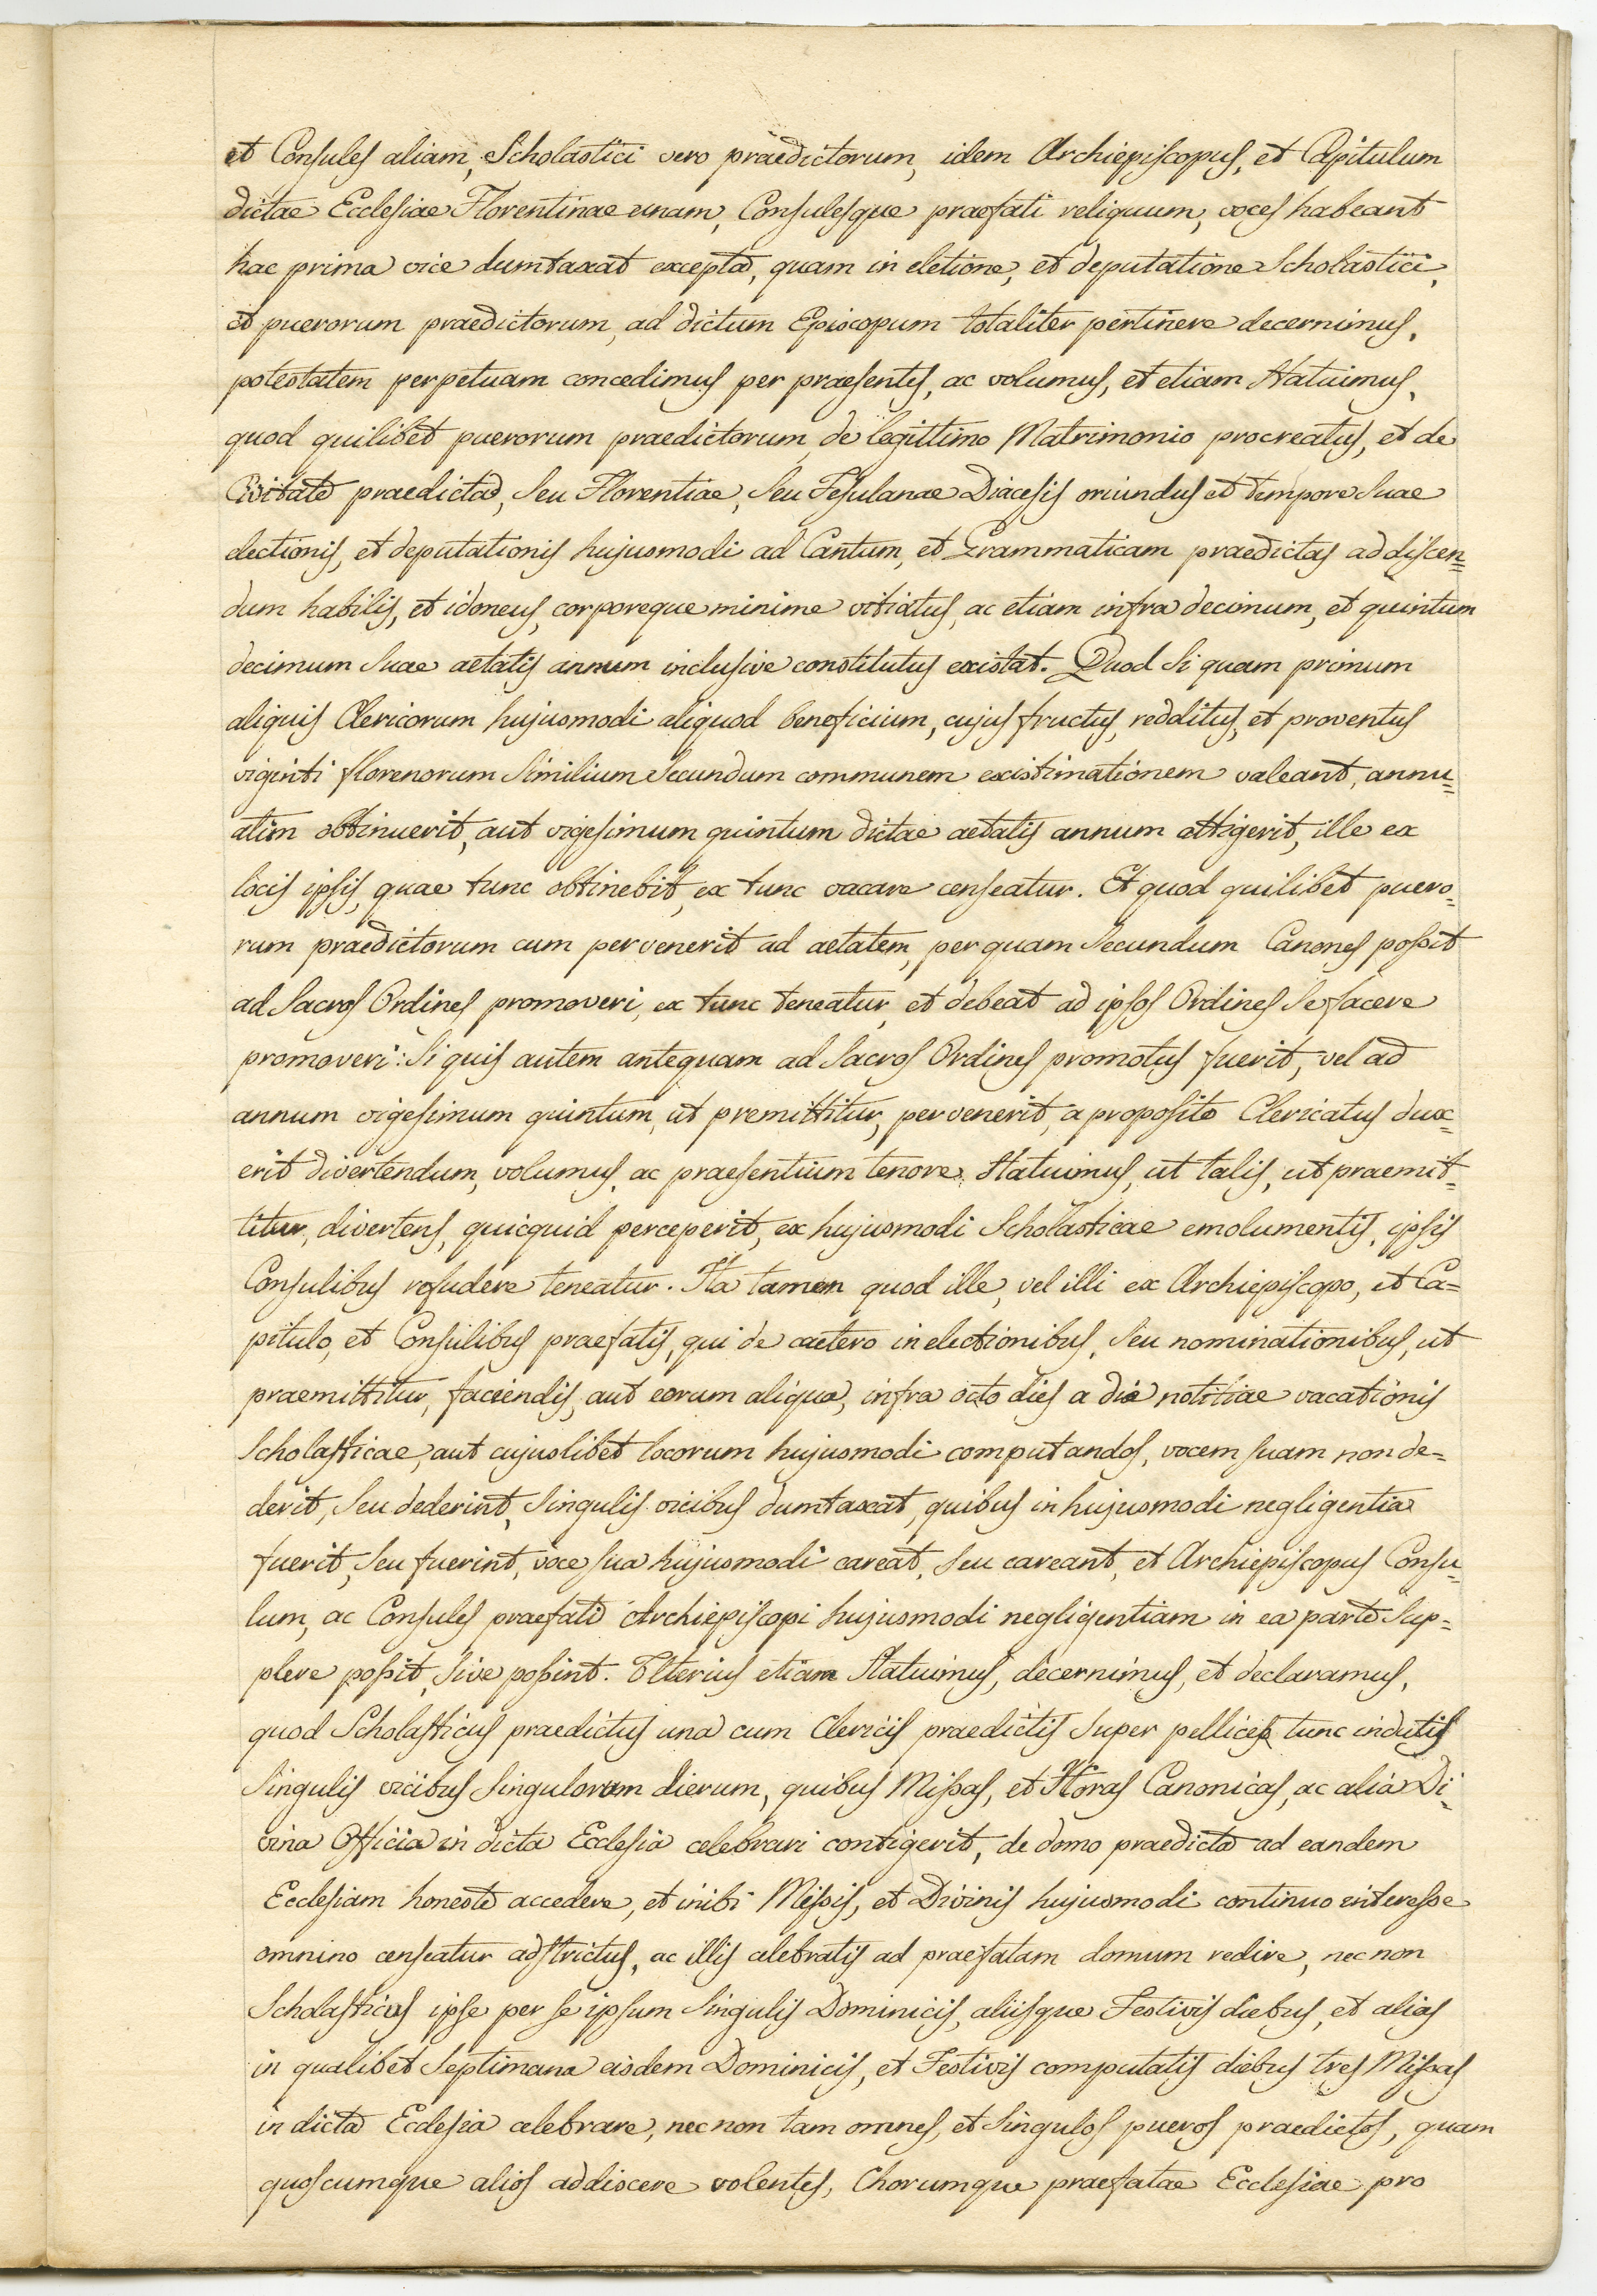 et Consules aliam, Scholastici vero praedictorum, idem Archiepiscopus, et Capitulum
dictae Ecclesiae Florentinae unam, Consulesque praefati reliquum, voces habeant
hac prima vice dumtaxat excepta, quam in eletione, et deputatione Scholastici,
et puerorum praedictorum, ad dictum Episcopum totaliter pertinere decernimus,
potestatem perpetuam concedimus per praesentes, ac volumus, et etiam Statuimus,
quod quilibet puerorum praedictorum, de legittimo Matrimonio procreatus, et de
Civitate praedicta, seu Florentiae, seu Fesulanae Diacesis oriundus et tempore suae
electionis, et deputationis hujusmodi ad Cantum, et Grammaticam praedictas addiscen=
dum habilis, et idoneus, corporeque minime vitiatus, ac etiam infra decimum, et quintum
decimum suae aetatis annum inclusive constitutus existat. Quod si quam primum
aliquis Clericorum hujusmodi aliquod beneficium, cujus fructus, redditus, et proventus
viginti florenorum similium secundum communem existimationem valeant, annu=
atim obtinuerit, aut vigesimum quintum dictae aetatis annum attigerit, ille ex
locis ipsis, quae tunc obtinebit, ex tunc vacare censeatur. Et quod quilibet puero=
rum praedictorum cum pervenerit ad aetatem, per quam secundum Canones possit
ad Sacros Ordines promoveri, ex tunc teneatur, et debeat ad ipsos Ordines se facere
promoveri: Si quis autem antequam ad Sacros Ordines promotus fuerit, vel ad
annum vigesimum quintum, ut premittitur, pervenerit, a proposito Clericatus dux=
erit divertendum, volumus, ac praesentium tenore Statuimus, ut talis, ut praemit=
titur, divertens, quicquid perceperit, ex hujusmodi Scholasticae emolumentis, ipsis
Consulibus refudere teneatur. Ita tamen quod ille, vel illi ex Archiepiscopo, et Ca=
pitulo, et Consulibus praefatis, qui de caetero in electionibus, seu nominationibus, ut
praemittitur, faciendis, aut eorum aliqua, infra octo dies a die notitiae vacationis
Scholasticae, aut cujuslibet locorum hujusmodi computandos, vocem suam non de=
derit, seu dederint, singulis vicibus dumtaxat, quibus in hujusmodi negligentia
fuerit, seu fuerint, voce sua hujusmodi careat, seu careant, et Archiepiscopus Consu=
lum, ac Consules praefati Archiepiscopi hujusmodi negligentiam in ea parte sup=
plere possit, sive possint. Ulterius etiam Statuimus, decernimus, et declaramus,
quod Scholasticus praedictus una cum Clericis praedictis super pelliceis tunc indutis
singulis vicibus singulorum dierum, quibus Missas, et Horas Canonicas, ac alia Di=
vina Officia in dicta Ecclesia celebrari contigerit, de domo praedicta ad eandem
Ecclesiam honeste accedere, et inibi Missis, et Divinis hujusmodi continuo interesse
omnino censeatur adstrictus, ac illis celebratis ad praefatam domum redire, nec non
Scholasticus ipse per se ipsum singulis Dominicis, aliisque Festivis diebus, et alias
in qualibet septimana eisdem Dominicis, et Festivis computatis diebus tres Missas
in dicta Ecclesia celebrare, nec non tam omnes, et singulos pueros praedictos, quam
quoscumque alios addiscere volentes, Chorumque praefatae Ecclesiae pro